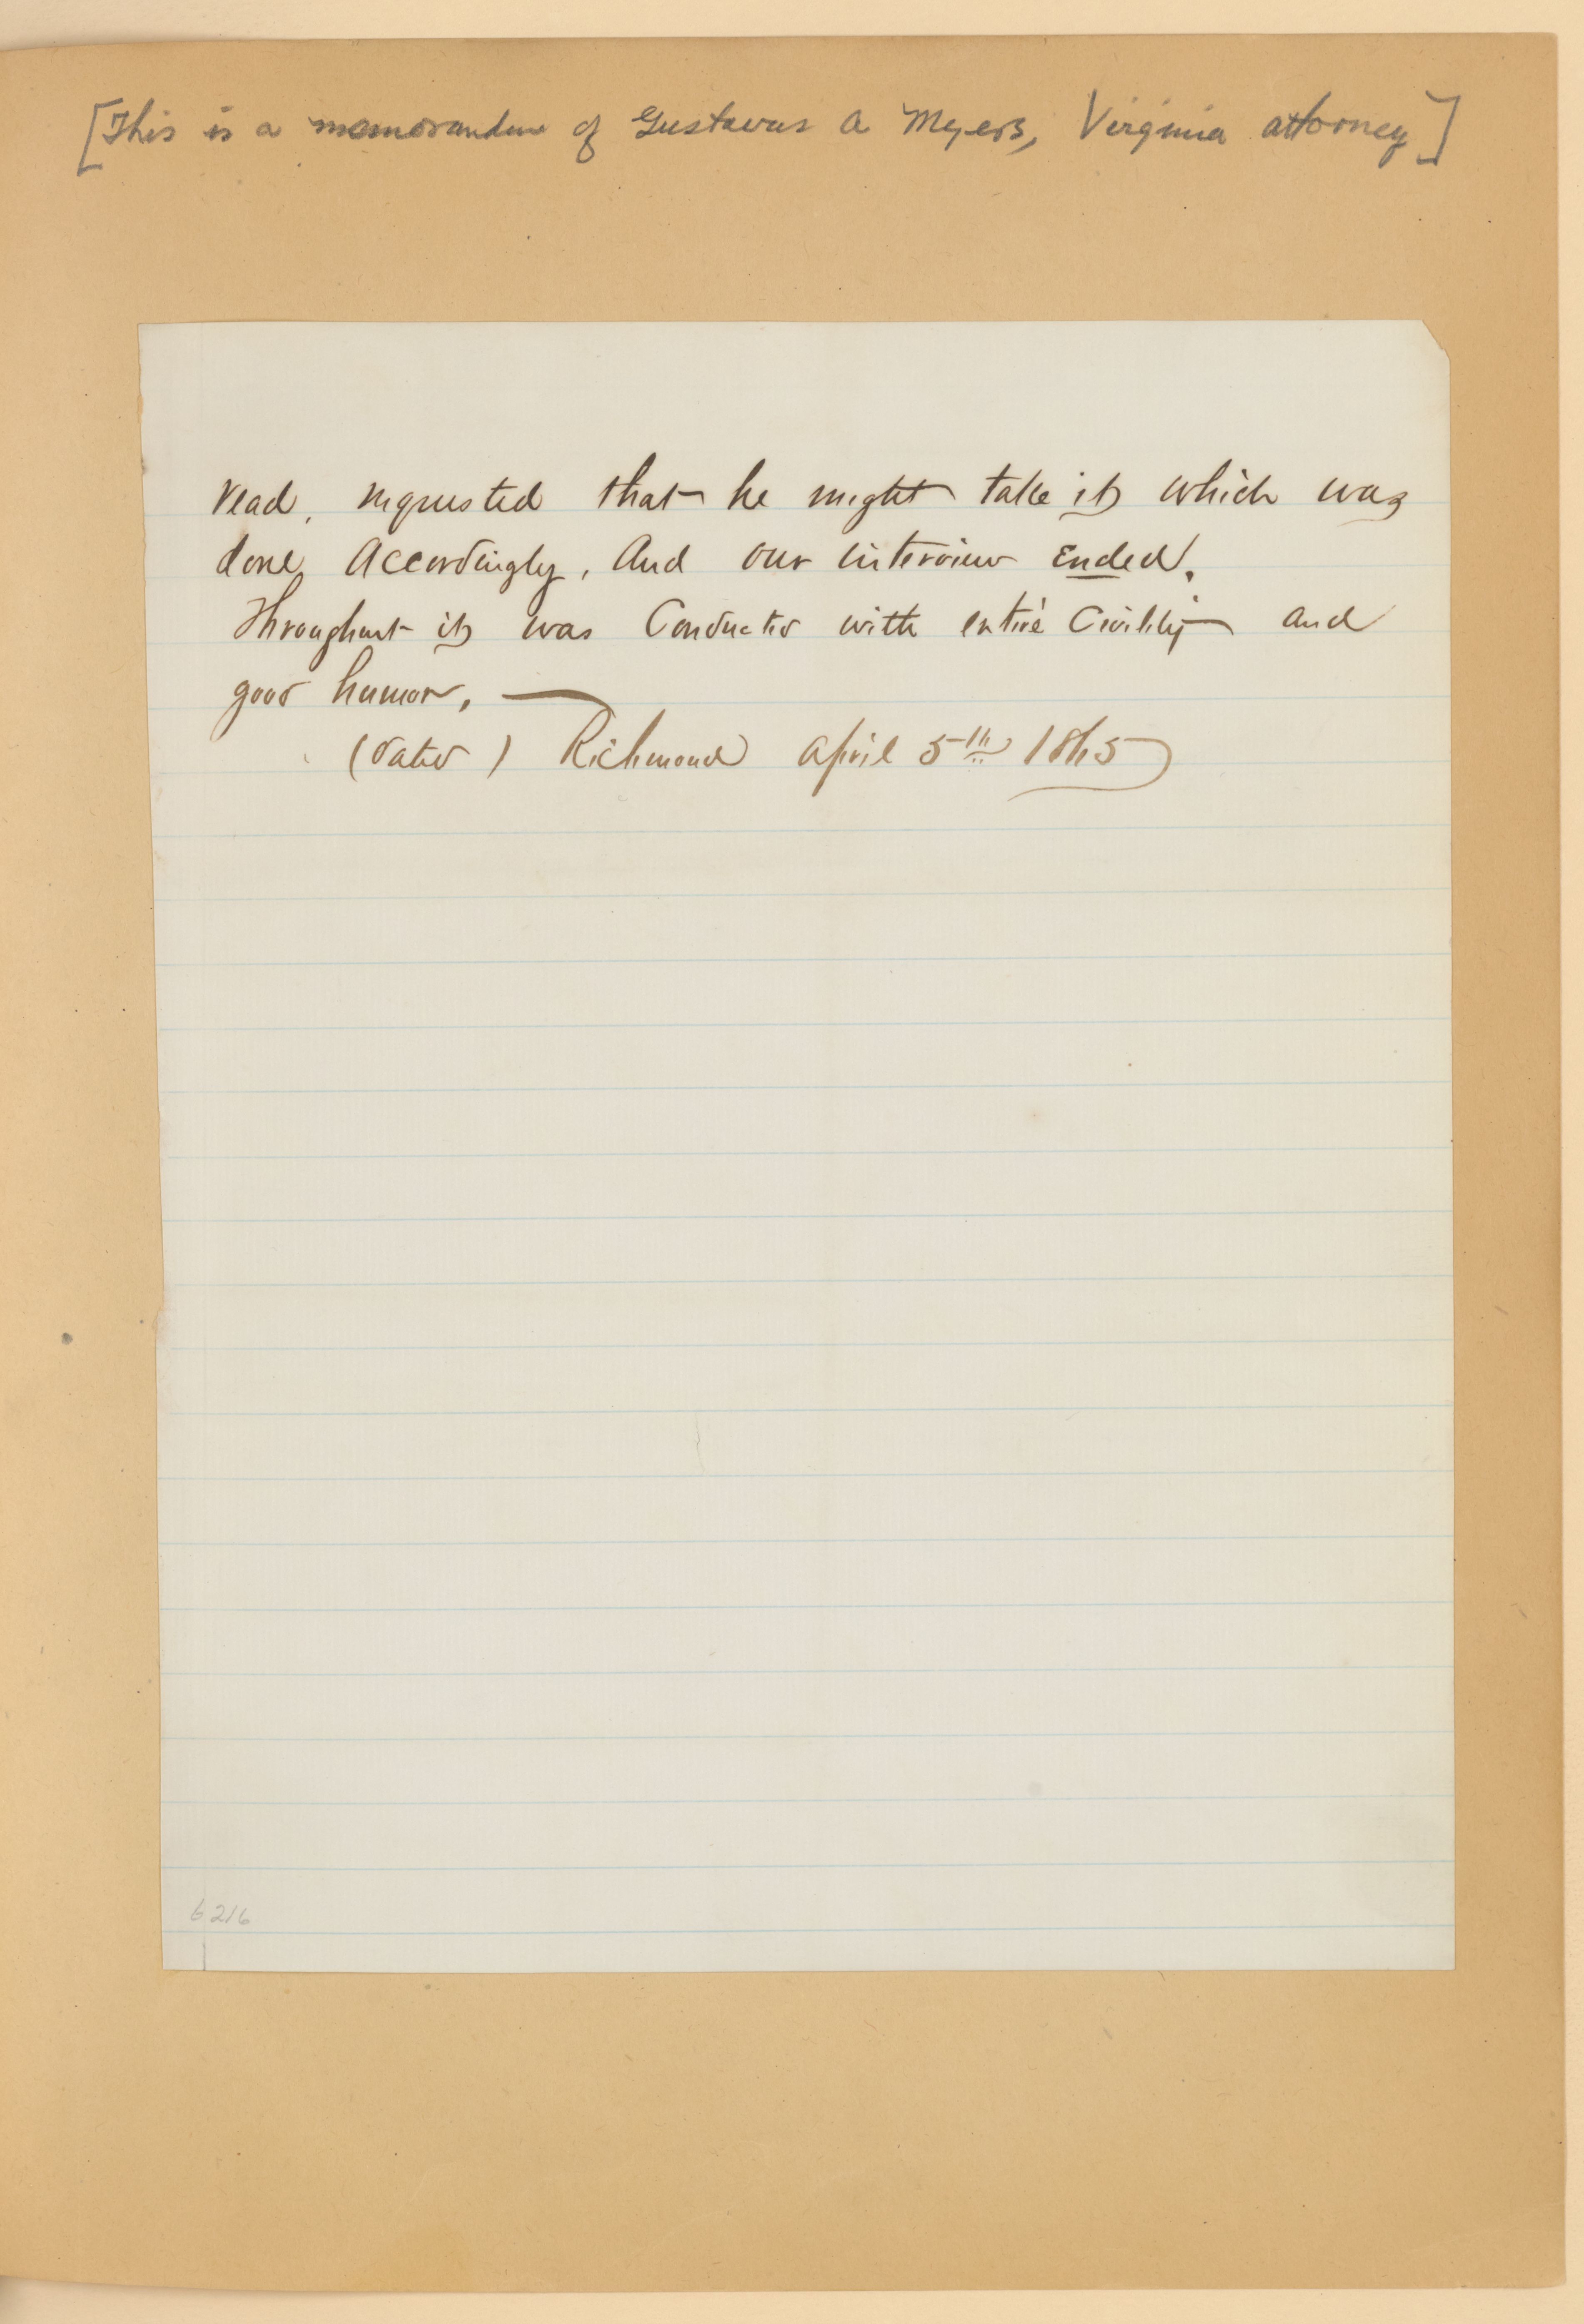 [This is a memorandum of Gustavus A Myers, Virginia attorney]
read, requested that he might take it, which was
done accordingly, and our interview ended.
Throughout it, was conducted with entire civility and
good humor. —
(dated) Richmond April 5th 1865
6216